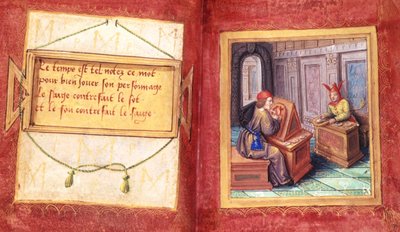 Le temps est tel notez ce mot
pour bien jouer son personnage
le saige contrefait le sot
et le fou contrefait le saige